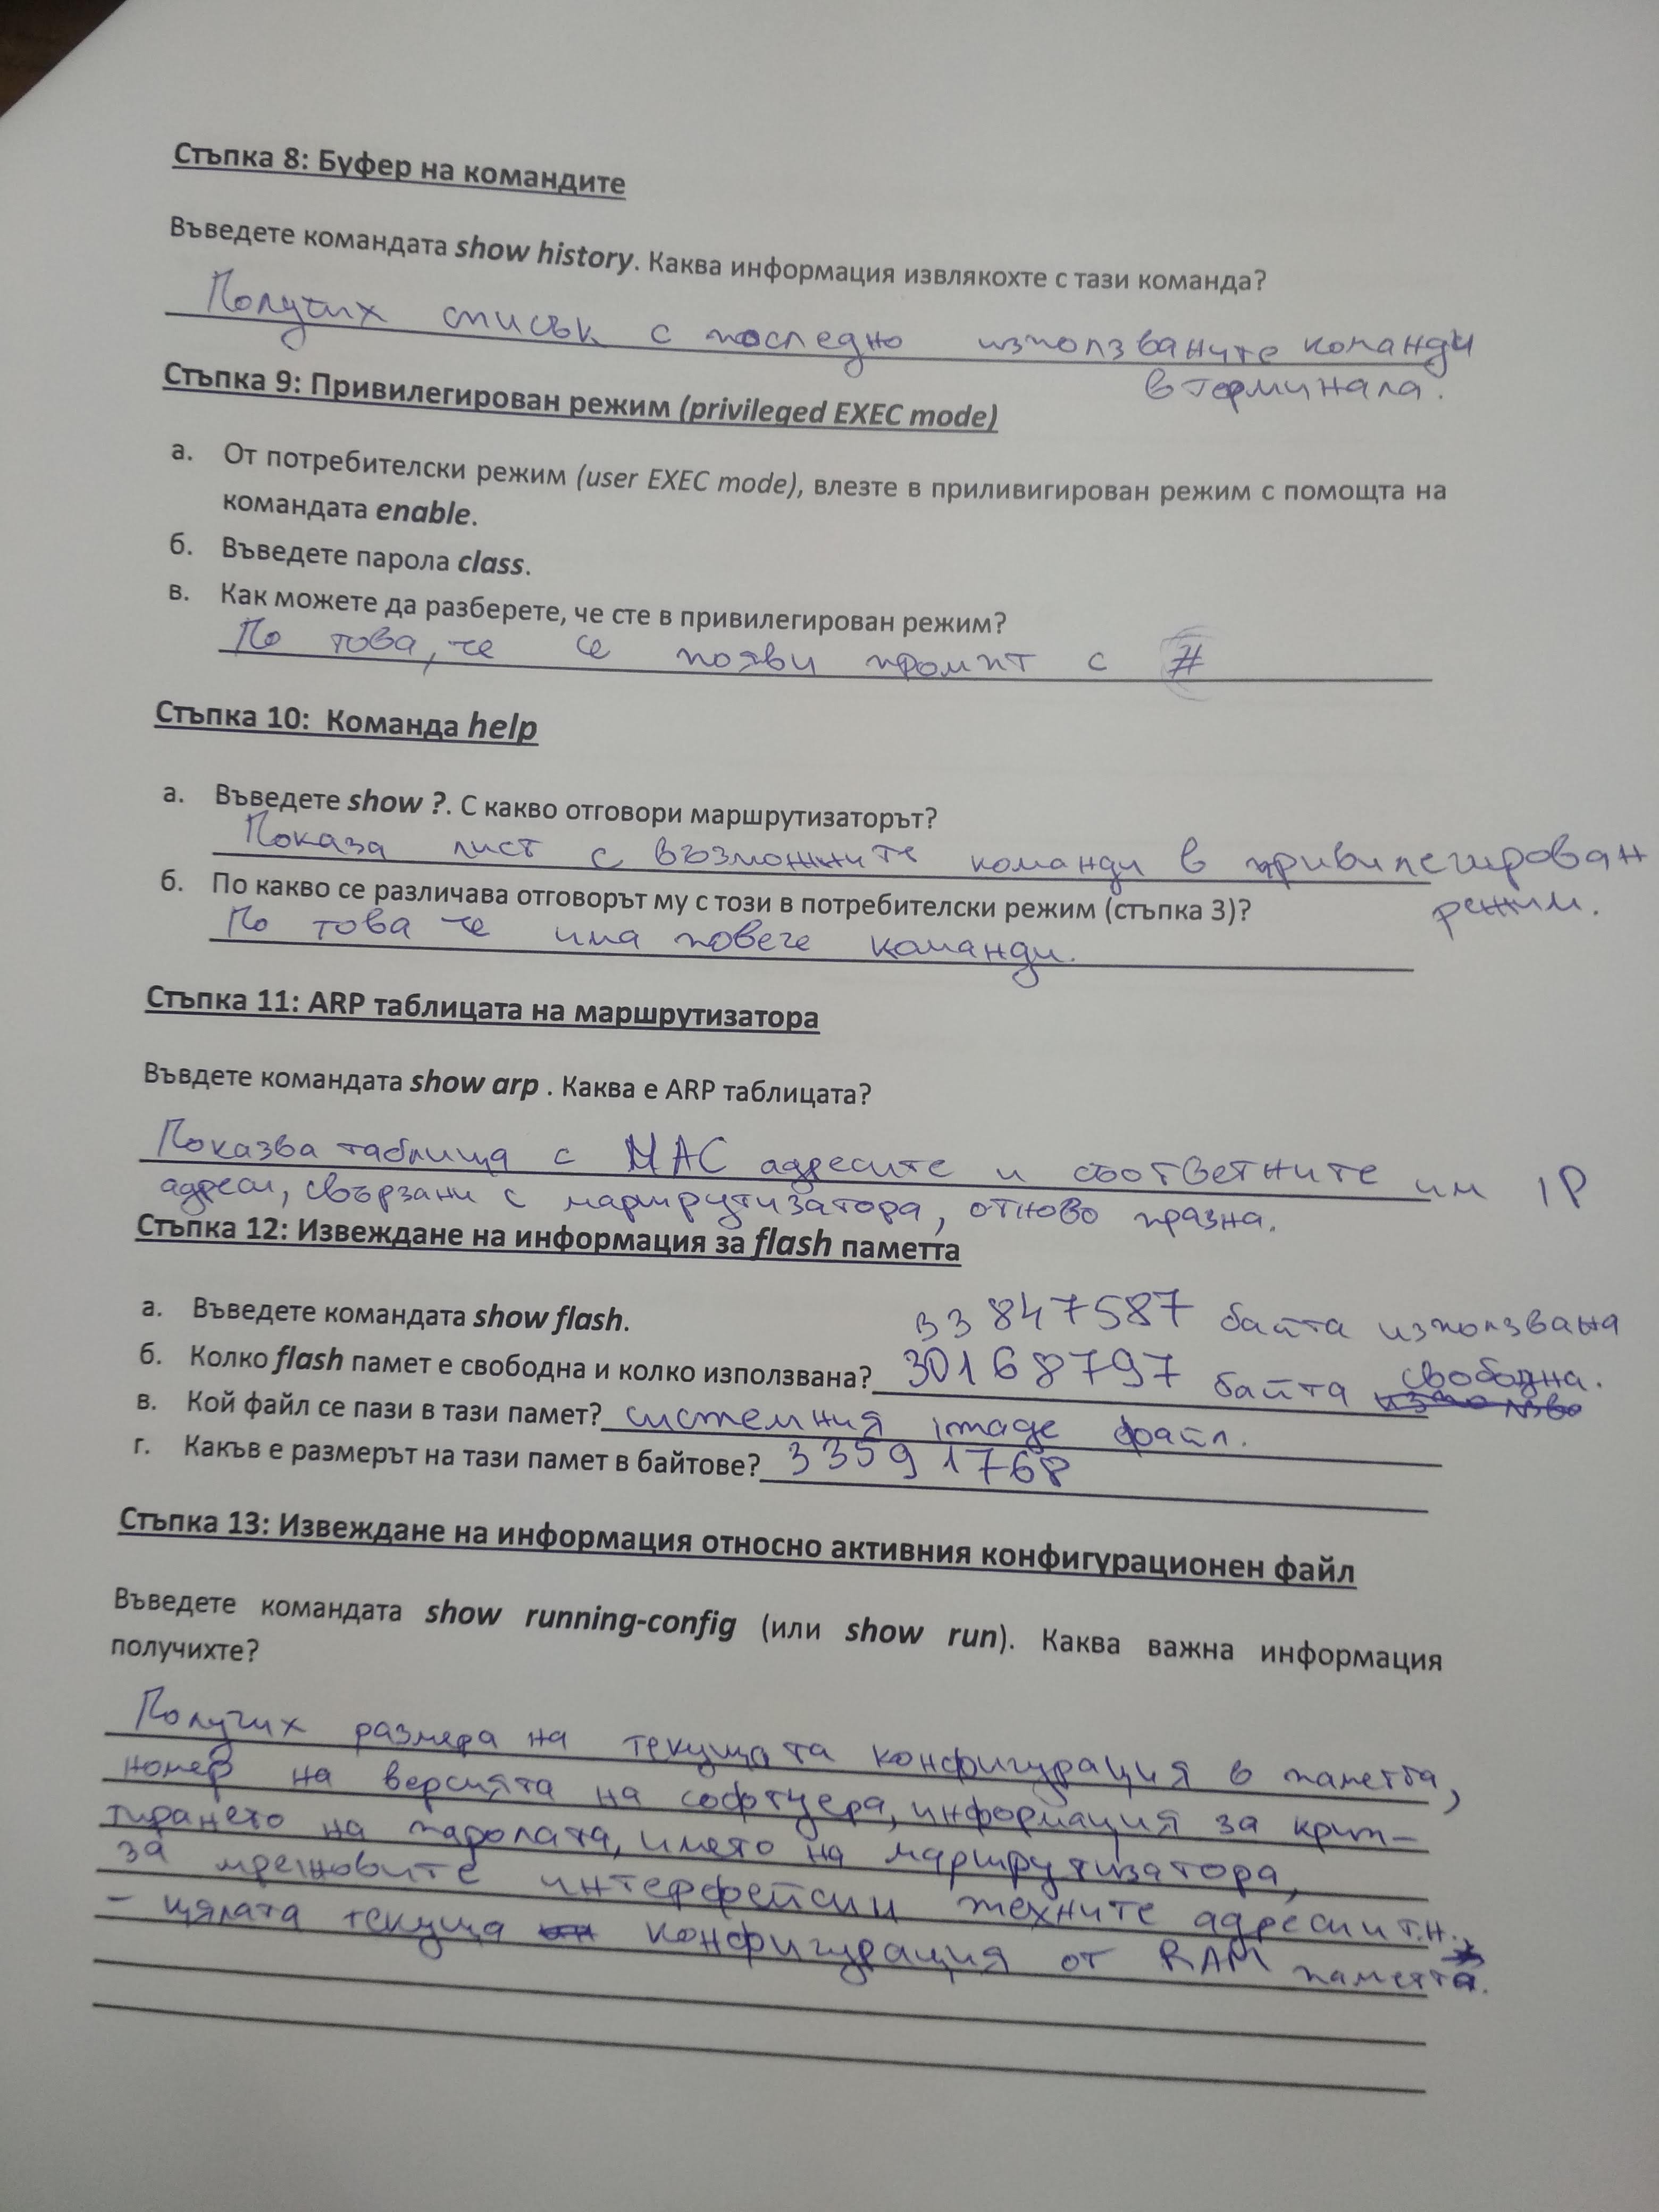 Стъпка 8: Буфер на командите
Въведете командата show history. Каква информация извлякохте с тази команда?
Получих списък с последно използваните команди
в терминала.
Стъпка 9: Привилегирован режим (privileged EXEC mode)
а. От потребителски режим (user EXEC mode), влезте в приливигирован режим с помощта на
командата enable.
б. Въведете парола class.
в. Как можете да разберете, че сте в привилегирован режим?
По това, че се появи промпт с #
Стъпка 10: Команда help
а. Въведете show ?. С какво отговори маршрутизаторът?
Показа лист с възможните команди в привилегирован
режим.
б. По какво се различава отговорът му с този в потребителски режим (стъпка 3)?
По това че има повече команди.
Стъпка 11: ARP таблицата на маршрутизатора
Въвдете командата show arp . Каква е ARP таблицата?
Показва таблица с MAC адресите и съответните им IP
адреси, свързани с маршрутизатора, отново празна.
Стъпка 12: Извеждане на информация за flash паметта
а. Въведете командата show flash.
33847587 байта използвана
б. Колко flash памет е свободна и колко използвана? 30168797 байта свободна.
в. Кой файл се пази в тази памет? системния image файл.
г. Какъв е размерът на тази памет в байтове? 33591768
Стъпка 13: Извеждане на информация относно активния конфигурационен файл
Въведете командата show running-config (или show run). Каква важна информация
получихте?
Получих размера на текущата конфигурация в паметта,
номер на версията на софтуера, информация за крип-
тирането на паролата, името на маршрутизатора,
за мрежовите интерфейси и техните адреси и т.н.
- цялата текуща конфигурация от RAM паметта.